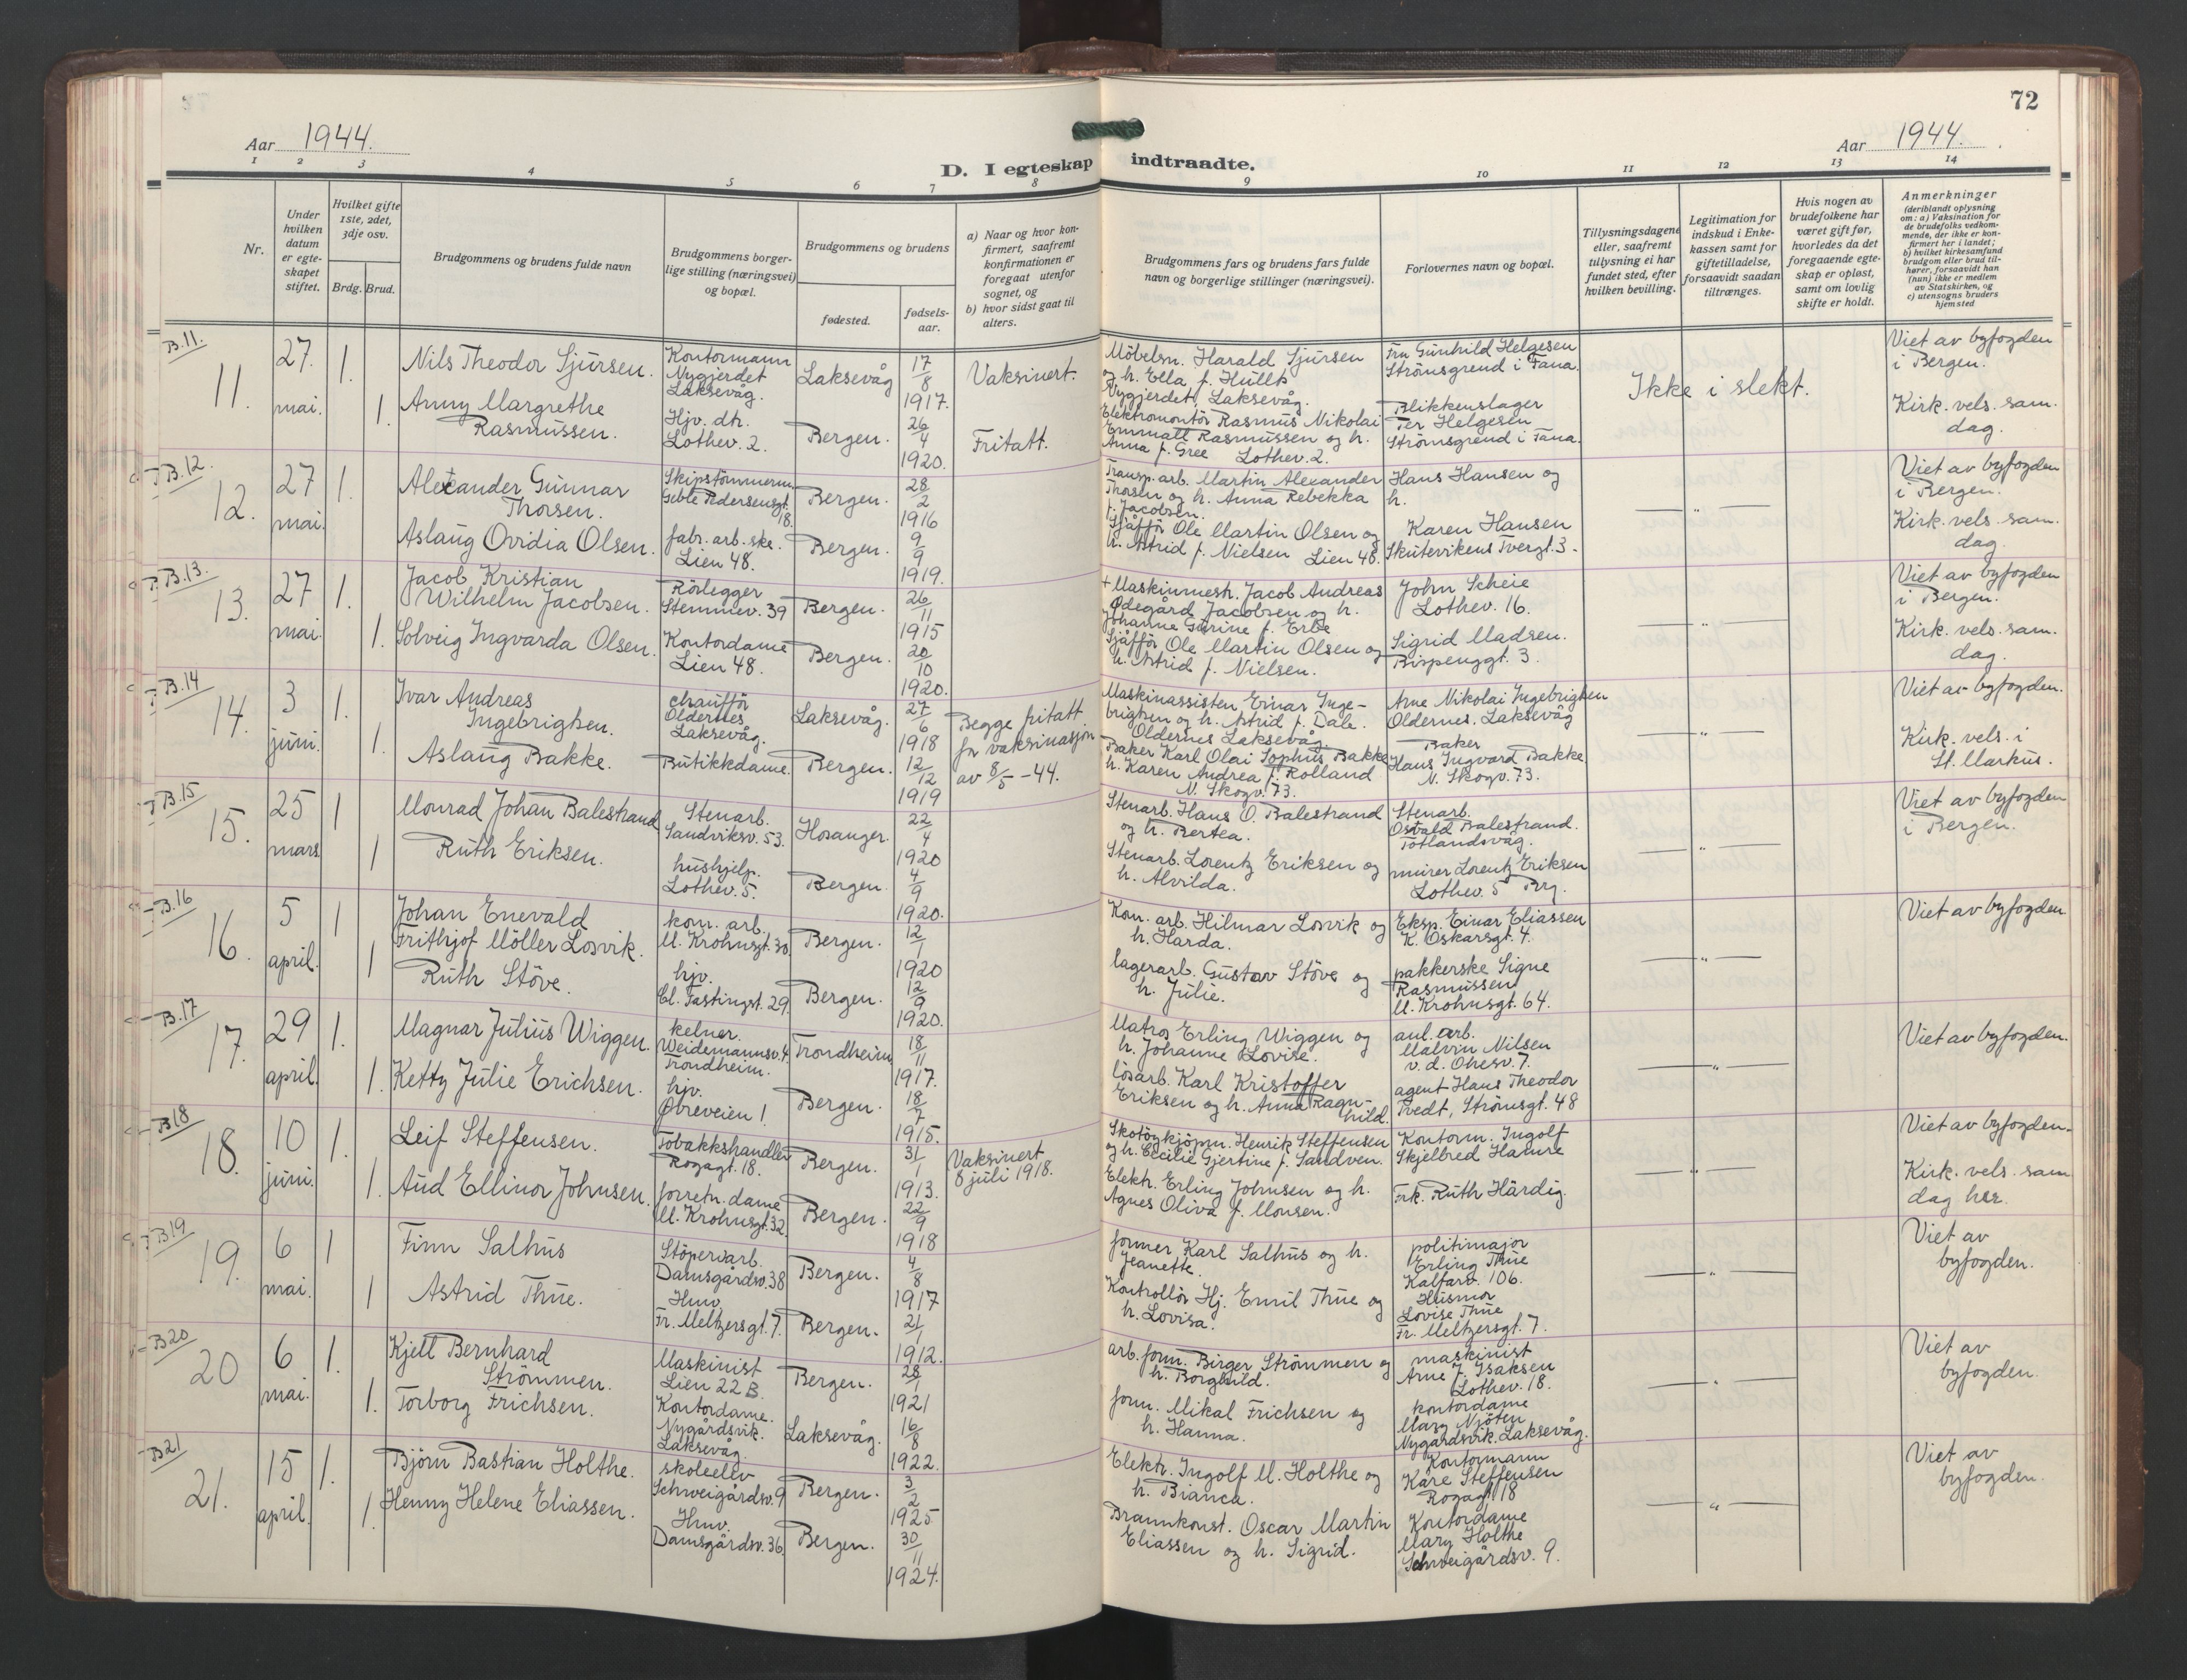 72
Aar 1944.
Aar 1944.
D. I egteskap indtraadte.
1 2 3 4 5 6 7 8 9 10 11 12 13 14
Nr.
Under hvilken datum er egteskapet stiftet.
Hvilket gifte 1ste, 2det, 3dje osv.
Brdg. Brud.
Brudgommens og brudens fulde navn
Brudgommens borgerlige stilling (næringsvei) og bopæl.
Brudgommens og brudens
fødested.
fødselsaar.
a) Naar og hvor konfirmert, saafremt konfirmationen er foregaat utenfor sognet, og
b) hvor sidst gaat til alters.
Brudgommens fars og brudens fars fulde navn og borgerlige stillinger (næringsvei).
Forlovernes navn og bopæl.
Tillysningsdagene eller, saafremt tillysning ei har fundet sted, efter hvilken bevilling.
Legitimation for indskud i Enkekassen samt for giftetilladelse, forsaavidt saadan tiltrænges.
Hvis nogen av brudefolkene har været gift før, hvorledes da det foregaaende egteskap er opløst, samt om lovlig skifte er holdt.
Anmerkninger
(deriblandt oplysning om: a) Vaksination for de brudefolks vedkommende, der ikke er konfirmert her i landet; b) hvilket kirkesamfund brudgom eller brud tilhører, forsaavidt han (hun) ikke er medlem av Statskirken, og c) utensogns bruders hjemsted
B.11.
11. 27. mai. 1. Nils Theodor Sjursen. Kontormann Nygjerdet Laksevåg. Laksevåg 17/8 1917. Vaksinert.
1. Anny Margrethe Rasmussen. Hjv. dtr. Lothev. 2. Bergen. 26/4 1920. Fritatt.
Möbelsn. Harald Sjursen og h. Ella f. Hullk Nygjerdet, Laksevåg.
Elektromontör Rasmus Nikolai Emmall Rasmussen og h. Anna f. Gree Lothev. 2.
Fru Gunhild Helgesen Strömsgrend i Fana.
Blikkenslager Per Helgesen Strömsgrend i Fana.
Ikke i slekt.
Viet av byfogden i Bergen.
Kirk. vels. sam. dag.
B.12.
12. 27 mai. 1. Alexander Gunnar Thorsen. Skipstömmerm. Geble Pedersensgt. 18. Bergen. 28/2 1916
Aslaug Ovidia Olsen. fabr. arb. ske. Lien 48. Bergen. 9/9 1919.
Transp. arb. Martin Alexander Thorsen og h. Anna Rebekka f. Jacobsen.
Sjåfför Ole Martin Olsen og h. Astrid f. Nielsen Lien 48.
Hans Hansen og h. Karen Hansen Skutevikens Tvergt. 3.
— „ —
Viet av byfogden i Bergen.
Kirk. vels. sam. dag.
B.13.
13. 27 mai. 1. Jacob Kristian Wilhelm Jacobsen. Rörlegger Stemmev. 39 Bergen. 26/11 1915
1. Solveig Ingvarda Olsen. Kontordame Lien 48. Bergen. 20/10 1920.
+ Maskinmest. Jacob Andreas Ødegård Jacobsen og h. Johanne Gurine f. Erbe
Sjåfför Ole Martin Olsen og h. Astrid f. Nielsen.
John Scheie Lothev. 16.
Sigrid Madsen. Bispenggt. 3.
— „ —
Viet av byfogden i Bergen.
Kirk. vels. sam. dag.
B.14
14. 3 juni. 1. Ivar Andreas Ingebrigtsen. chaufför Oldernes Laksevåg. Laksevåg. 27/6 1918
1. Aslaug Bakke. Butikkdame. Bergen. 12/12 1919
Begge fritatt for vaksinasjon av 8/5 -44.
Maskinassisten Einar Ingebrigtsen og h. Astrid f. Dale. Oldernes Laksevåg.
Baker Karl Olai Sophus Bakke h. Karen Andrea f. Rolland N. Skogv. 73.
Arne Nikolai Ingebrigtsen Oldernes, Laksevåg
Baker Hans Ingvard Bakke N. Skogv. 73.
— „ —
Viet av byfogden.
Kirk. vels. i St. Markus.
B.15
15. 25 mars 1 Monrad Johan Balestrand Stenarb. Sandviksv. 53. Hosanger. 22/4 1920
1 Ruth Eriksen. hushjelp. Lothev. 5. Bergen. 4/9 1920.
Stenarb. Hans O. Balestrand og h. Bertea.
Stenarb. Lorentz Eriksen og h. Alvilda.
Stenarb. Osvald Balestrand. Totlandsvåg.
murer Lorentz Eriksen Lothev. 5 Brg.
— „ —
Viet av byfogden i Bergen.
B.16
16. 5 april. 1 Johan Enevald Frithjof Möller Losvik. kom. arb. M. Krohnsgt. 30 Bergen. 12/1 1920
1 Ruth Störe. hjv. Cl. Fastingst. 29. Bergen. 12/9 1920.
Kom. arb. Hilmar Losvik og h. Harda.
lagerarb. Gustav Störe og h. Julie.
Eksp. Einar Eliassen K. Oskarsgt. 4.
pakkerske Signe Rasmussen M. Krohnsgt. 64.
— „ —
Viet av byfogden
B.17
17. 29 april. 1. Magnar Julius Wiggen. kelner. Weidemannsv. 4 Trondheim. Trondheim 18/11 1917.
1. Ketty Julie Erichsen. hjv. Øvreveien 1 Bergen. 18/7 1915.
Matros Erling Wiggen og h. Johanne Lovise.
lösarb. Karl Kristoffer Eriksen og h. Anna Ragnhild.
anl. arb. Malvin Nilsen v. d. Ohesv. 7.
agent Hans Theodor Tvedt, Strömsgt. 48
— „ —
Viet av byfogden.
B18
18. 10 juni. 1. Leif Steffensen. Tobakkshandler Rogagt. 18. Bergen. 31/1 1913. Vaksinert 8 juli 1918.
1. Aud Ellinor Johnsen. forretn. dame M. Krohnsgt. 32. Bergen. 22/9 1918
Skotöykjöpm. Henrik Steffensen og h. Cecilie Gjertine f. Sandven.
Elektr. Erling Johnsen og h. Agnes Oliva f. Monsen.
Kontorm. Ingolf Skjelbred Hamre
Frk. Ruth Hårdig.
— „ —
Viet av byfogden.
Kirk. vels. sam dag her.
B19
19. 6 mai. 1 Finn Salhus Stöperiarb. Damsgårdsv. 38 Bergen. 4/8 1917
1 Astrid Thue. Hmv. Fr. Meltzersgt. 7. Bergen. 21/1 1912.
former Karl Salhus og h. Jeanette.
Kontrollör Hj. Emil Thue og h. Lovisa.
politimajor Erling Thue Kalfarv. 106.
Husmor Lovise Thue Fr. Meltzersgt. 7.
— „ —
Viet av byfogden.
B20
20 6 mai. 1. Kjell Bernhard Strömmen. Maskinist Lien 22 B. Bergen. 28/1 1921
1. Torborg Frichsen. Kontordame. Nygårdsvik. Laksevåg Laksevåg. 16/8 1922.
arb. form. Birger Strömmen og h. Borghild.
form. Mikal Frichsen og h. Hanna.
maskinist Arne J. Isaksen Lothev. 18.
kontordame Mary Njöten Nygårdsvik. Laksevåg.
— „ —
Viet av byfogden.
B21
21. 15 april. 1. Björn Bastian Holthe. skoleelev Schweigårdsv. 9 Bergen. 3/2 1925
1. Henny Helene Eliassen. Hmv. Damsgårdsv. 36. Bergen. 30/11 1924.
Elektr. Ingolf M. Holthe og h. Bianca.
Brannkonst. Oscar Martin Eliassen og h. Sigrid.
Kontormann Kåre Steffensen Rogagt 18
Kontordame Mary Holthe Schweigårdsv. 9.
— „ —
Viet av byfogden.